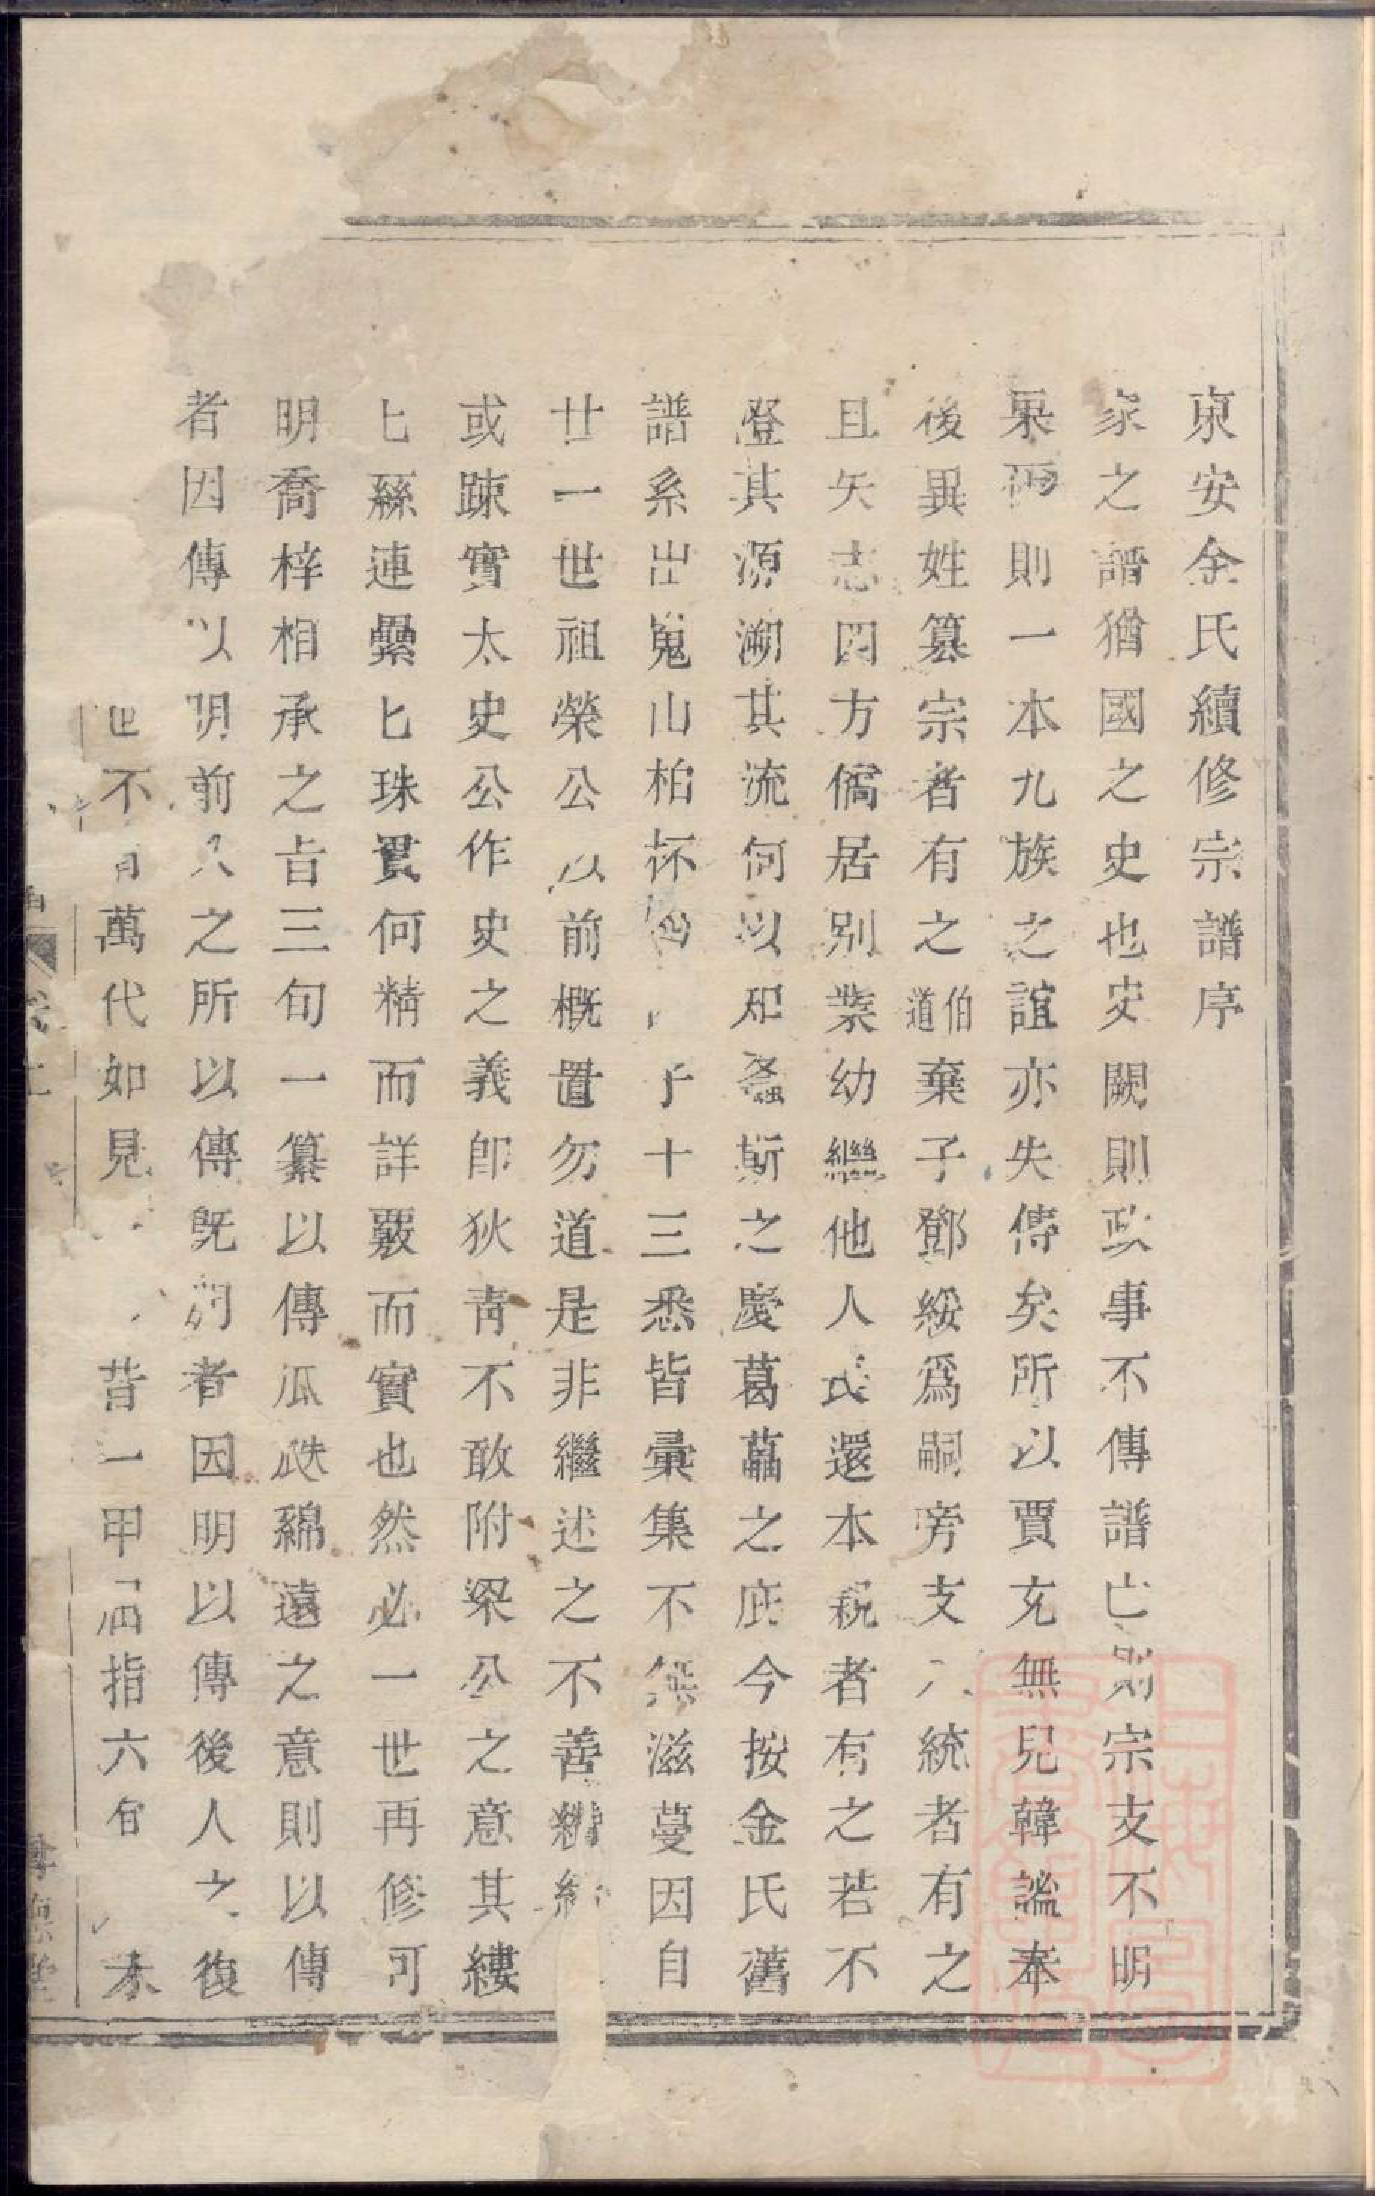 東安金氏續修宗譜序
家之譜猶國之史也史闕則政事不傳譜亡則宗支不明
果爾則一本九族之誼亦失傳矣所以賈充無兒韓謐奉
後異姓篡宗者有之伯道棄子鄧綏爲嗣旁支入統者有之
且矢志四方僑居別業幼繼他人氏還本親者有之若不
澄其源溯其流何以知螽斯之慶葛藟之庇今按金氏舊
譜系出嵬山柏杯四子十三悉皆彙集不無滋蔓因自
廿一世祖榮公以前概置勿道是非繼述之不善
或疎實太史公作史之義卽狄青不敢附梁公之意其縷
匕絲連纍匕珠貫何精而詳覈而實也然必一世再修可
明喬梓相承之旨三旬一纂以傳瓜瓞綿遠之意則以傳
者因傳以明前人之所以傳旣明者因明以傳後人之復
世不有萬代如見昔一甲屈指六旬未